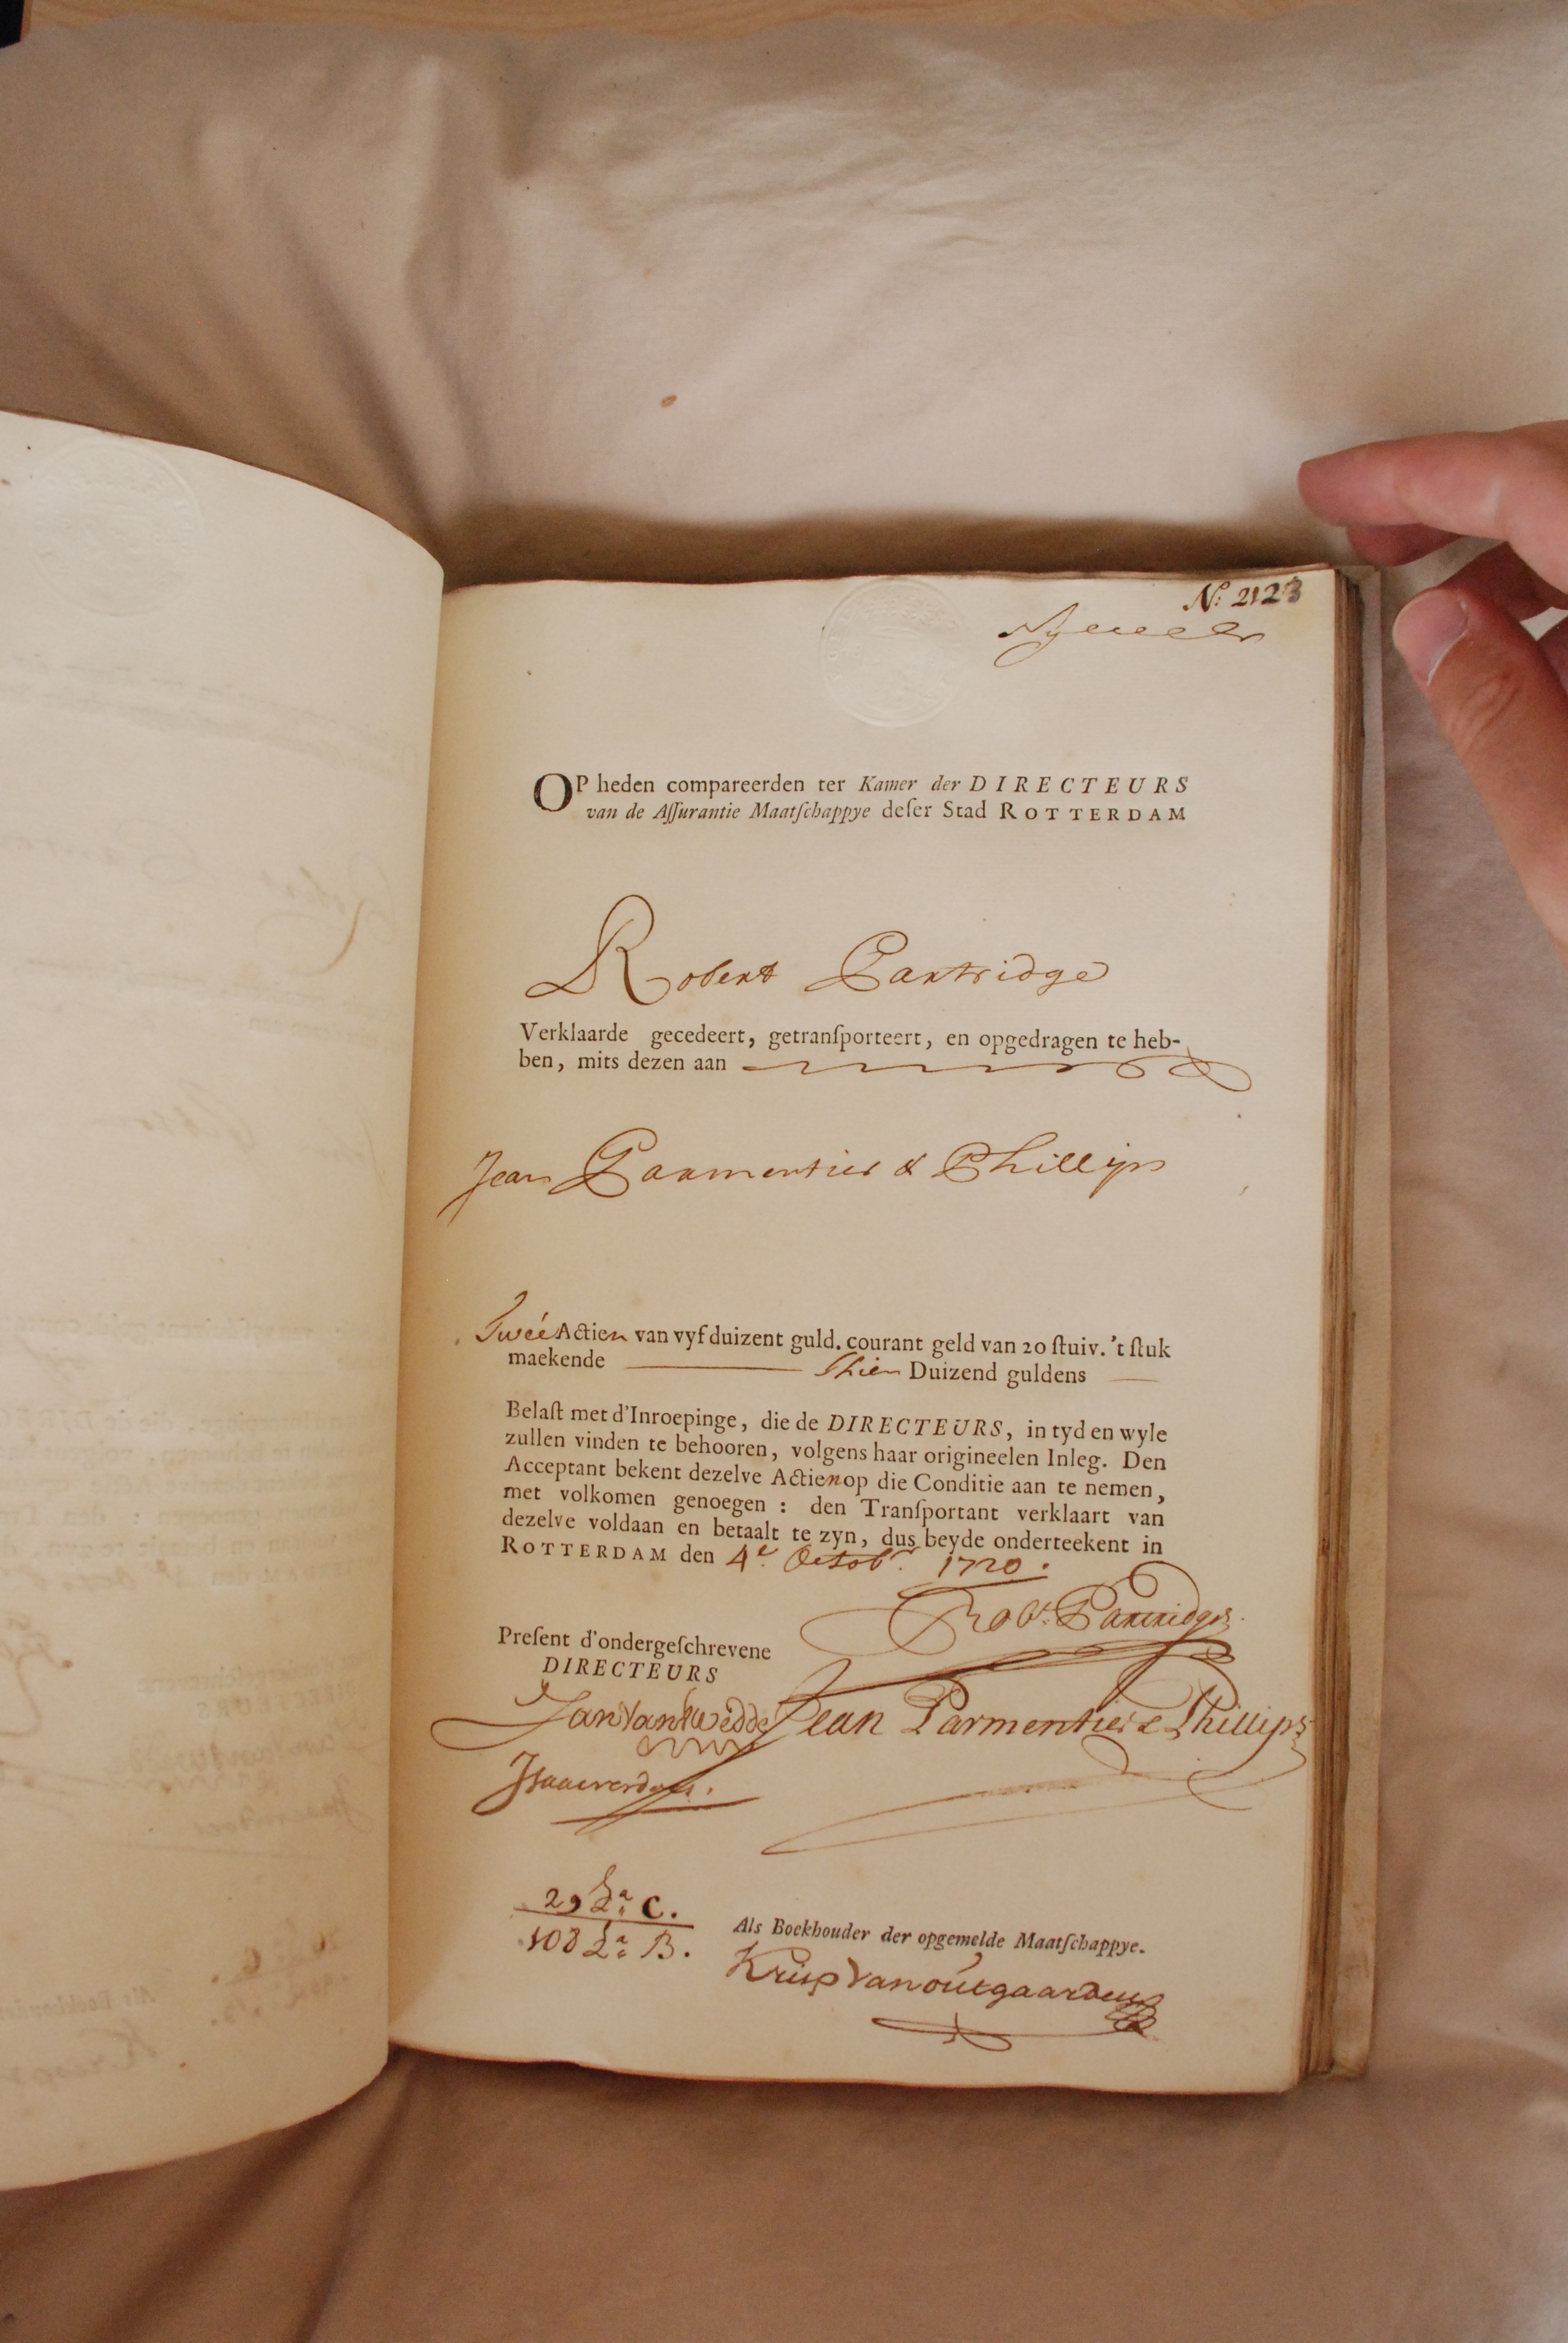 N.º 2123
OP heden compareerden ter Kamer der DIRECTEURS
van de Aſſurantie Maatſchappye deſer Stad ROTTERDAM
Robert Partridge
Verklaarde gecedeert, getranſporteert, en opgedragen te heb-
ben, mits dezen aan
Jean Parmentier & Phillips
Tweé Actien van vyf duizent guld. courant geld van 20 ſtuiv. 't ſtuk
maekende Thien Duizend guldens
Belaſt met d'Inroepinge, die de DIRECTEURS, in tyd en wyle
zullen vinden te behooren, volgens haar origineelen Inleg. Den
Acceptant bekent dezelve Actien op die Conditie aan te nemen,
met volkomen genoegen : den Tranſportant verklaart van
dezelve voldaan en betaalt te zyn, dus beyde onderteekent in
ROTTERDAM den 4e. Octobr. 1720.
Robt. Partridge
Preſent d'ondergeſchrevene
DIRECTEURS
Jan Van Twedde Jean Parmentier & Phillips
29 La C.
108 La B.
Als Boekhouder der opgemelde Maatſchappye.
Krisp Van outgaarden